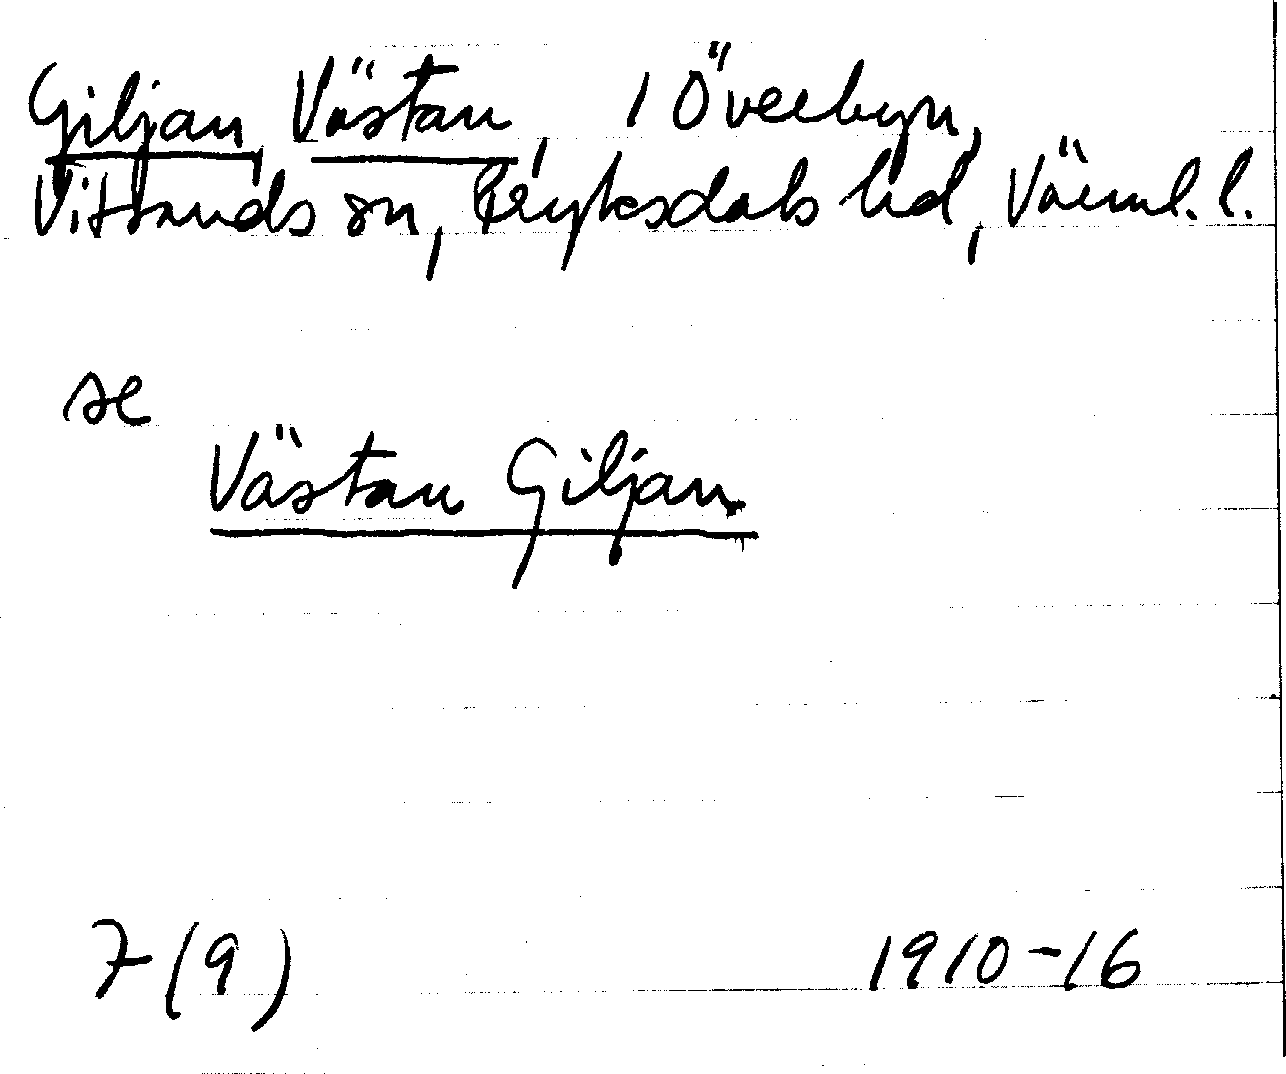 Giljan, Västan, i Överbyn,
Vitsands sn, Fryksdals hd, Värml. l.
se
Västan Giljan
7 (9)
1910-16